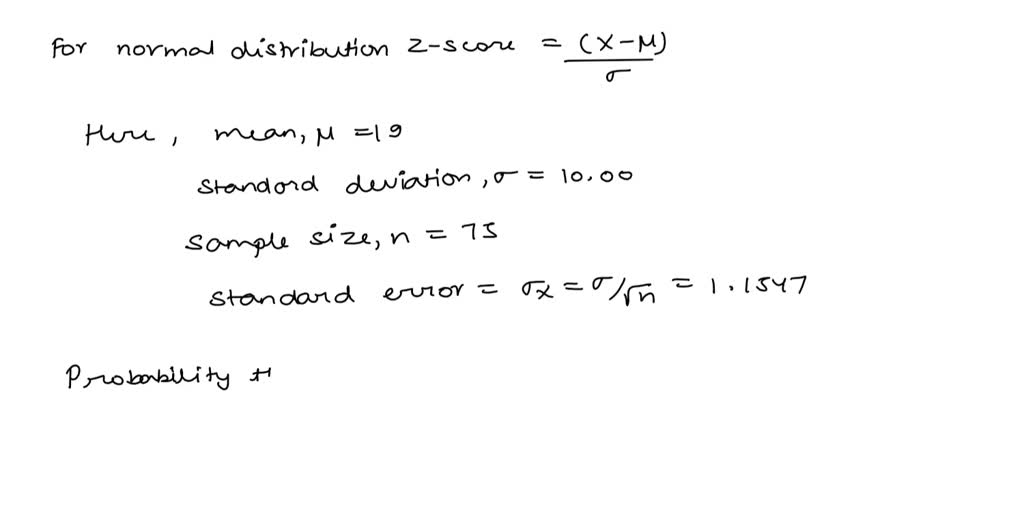 For normal distribution z-score = (X-μ)/σ
Here, mean, μ = 19
standard deviation, σ = 10.00
sample size, n = 75
standard error = σx = σ/√n = 1.1547
Probability